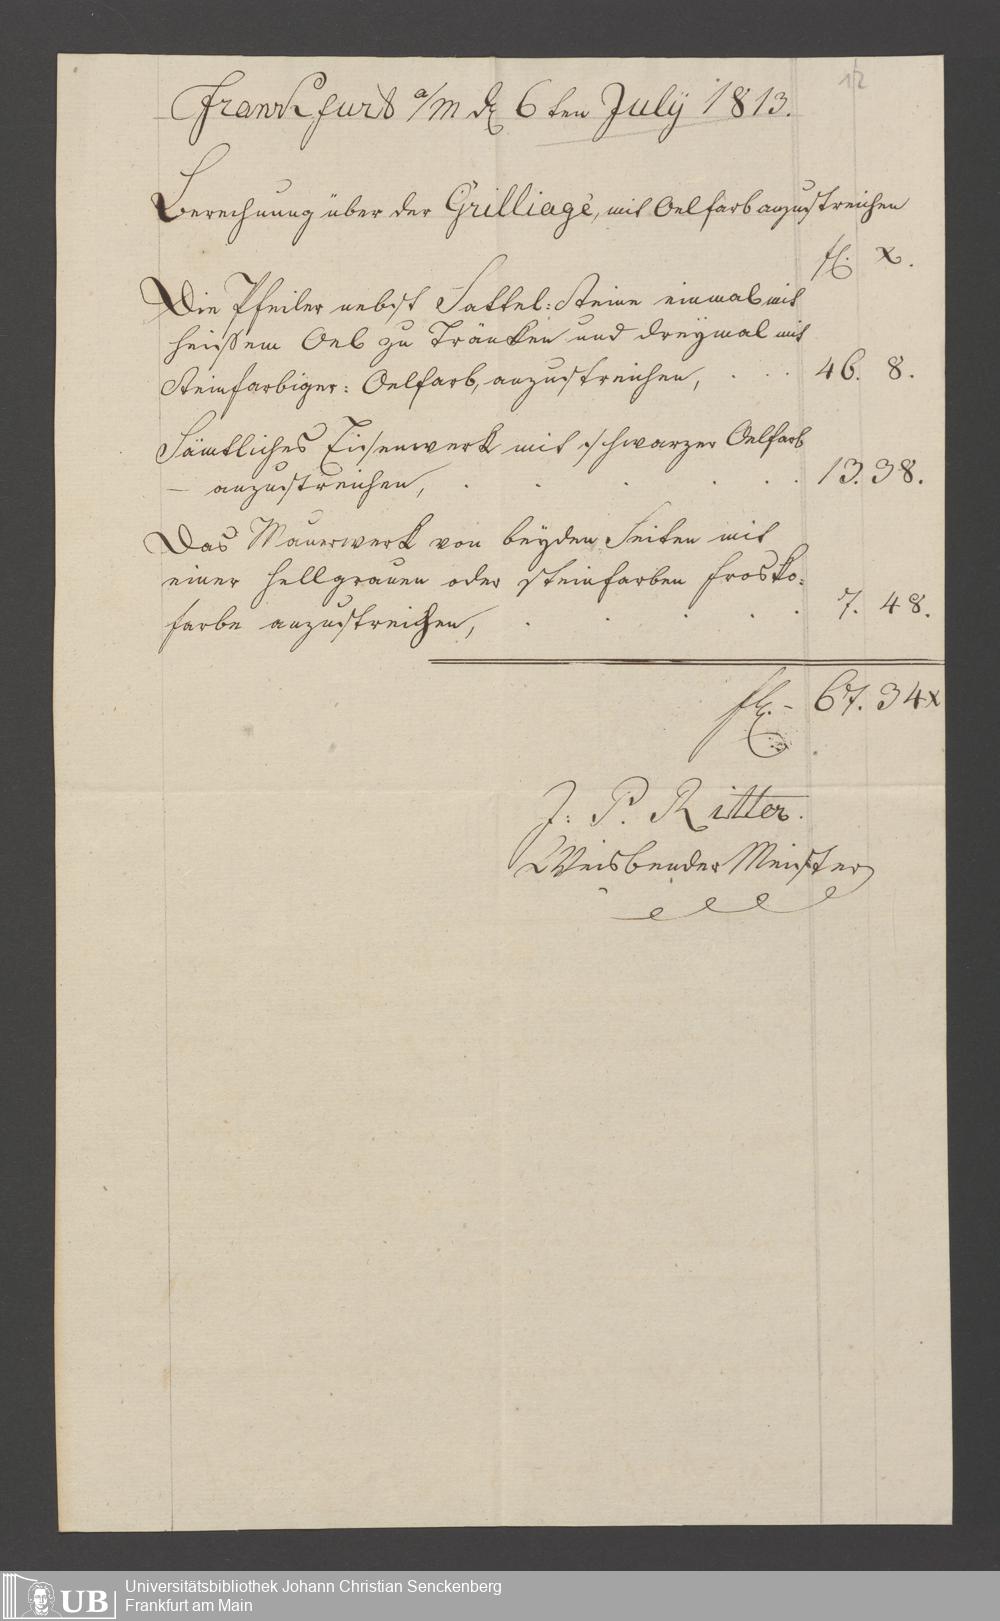 12
Franckfurt a/M d 6ten Julÿ 1813.
Berechnung über der Grilliage, mit Oelfarb anzustreichen
fl. x.
Die Pfeiler nebst Sattel: Steine einmal mit
heißem Oel zu Tränken und dreymal mit
Steinfarbiger: Oelfarb, anzustreichen, . . . 46. 8.
Sämtliches Eisenwerk mit schwarzer Oelfarb
— anzustreichen, . . . . . . 13. 38.
Das Mauerwerk von beyden Seiten mit
einer hellgrauen oder steinfarben Fresko=
farbe anzustreichen, . . . . . 7. 48.
fl. - 67. 34 x
J: P. Ritter.
Weisbender Meister
UB Universitätsbibliothek Johann Christian Senckenberg
Frankfurt am Main